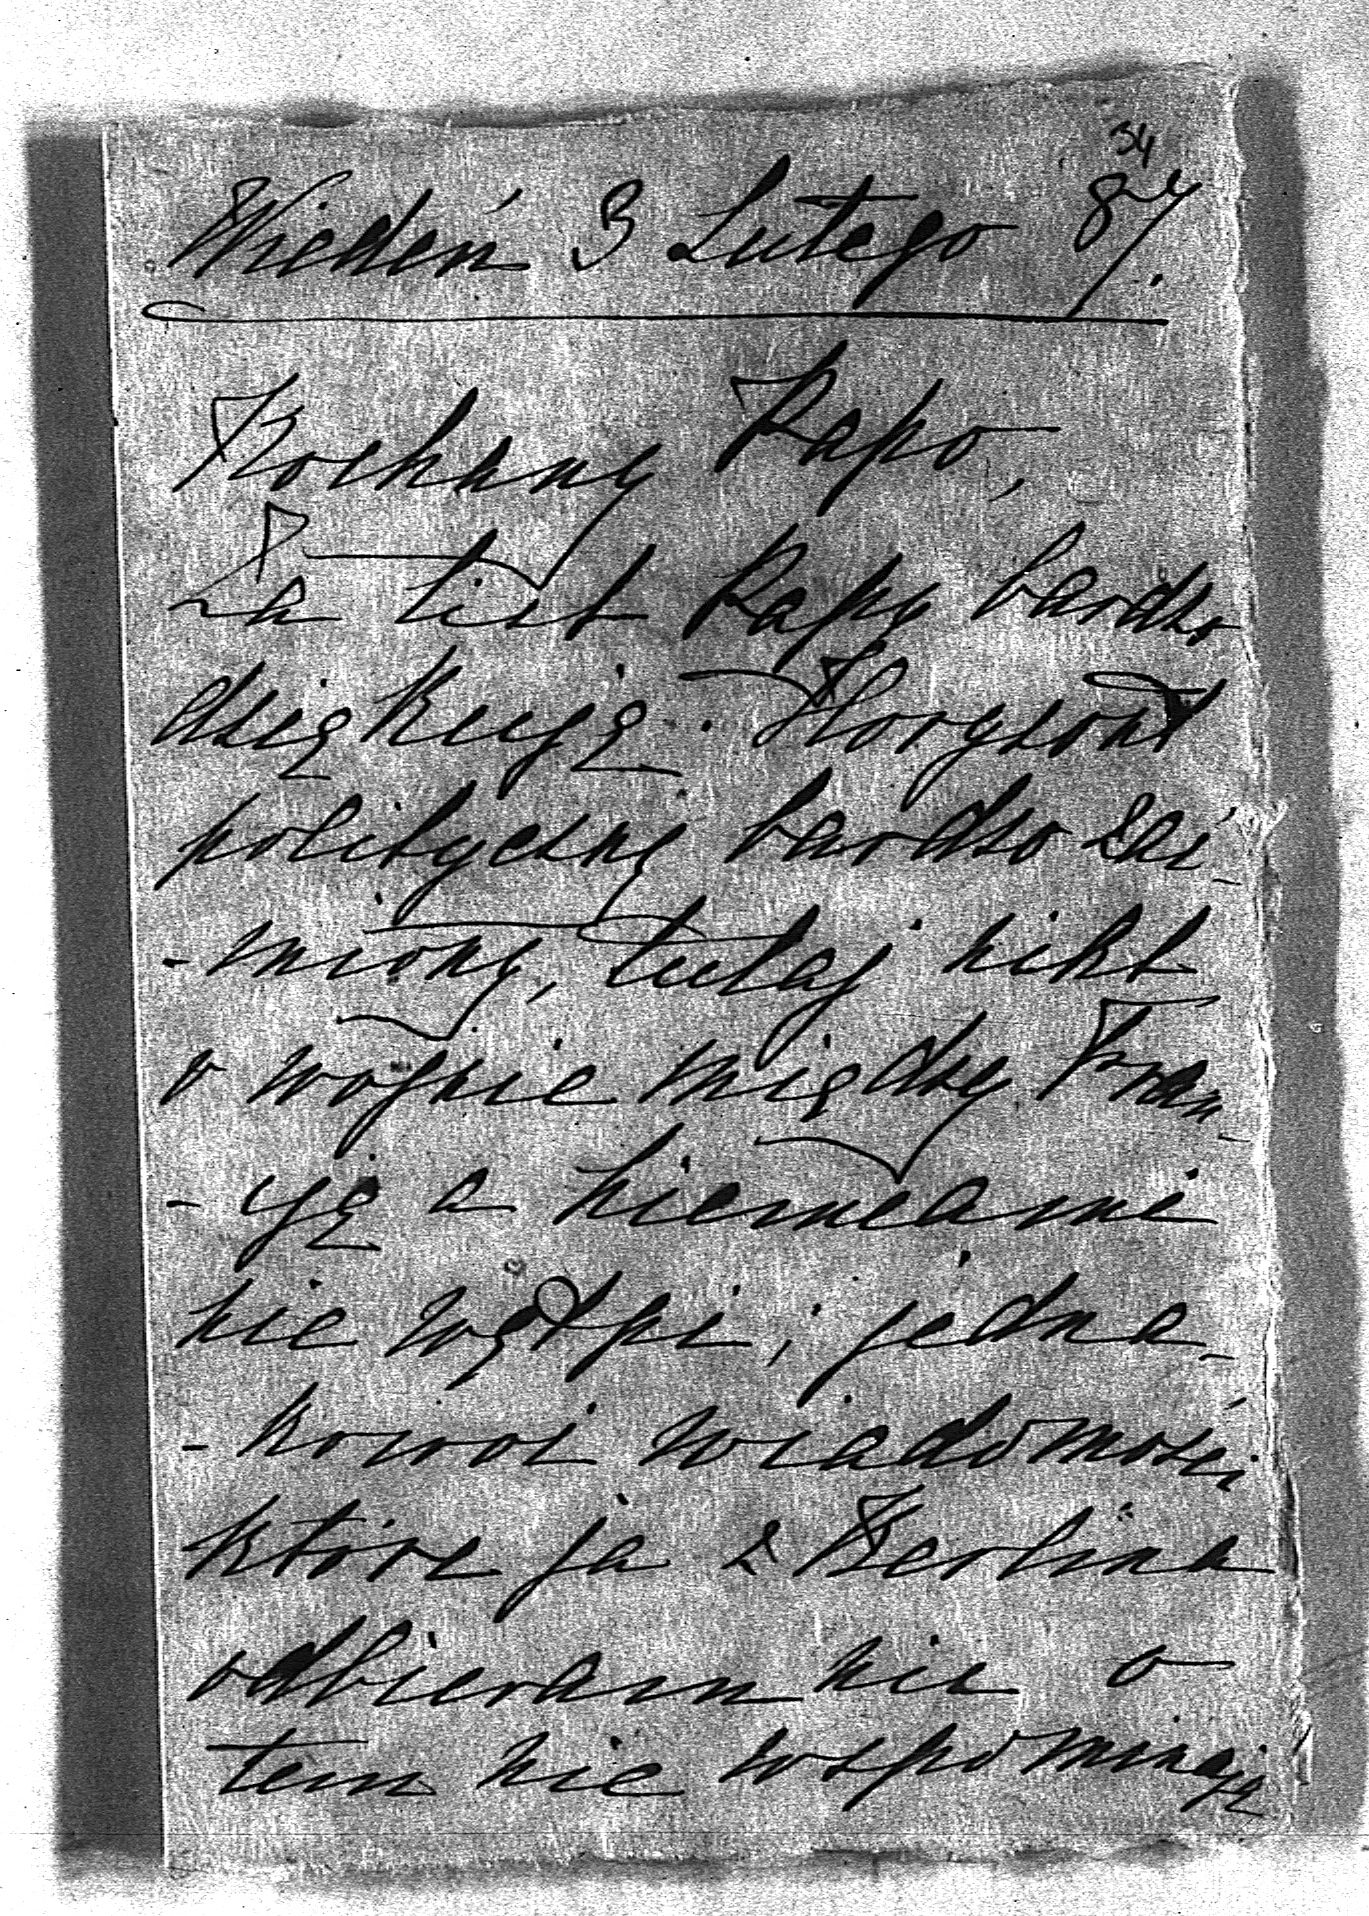 34
Wiedeń 3 Lutego 87.
Kochany Papo,
Za list Papy bardzo
dziękuję. Horyzont
polityczny bardzo zai-
-miony, tutaj nikt
o wojnie między Fran-
-yą a Niemcami
nie wątpi; jedna-
-kowoż wiadomości
które ja z Berlina
odbieram nic o
tem nie wspominają